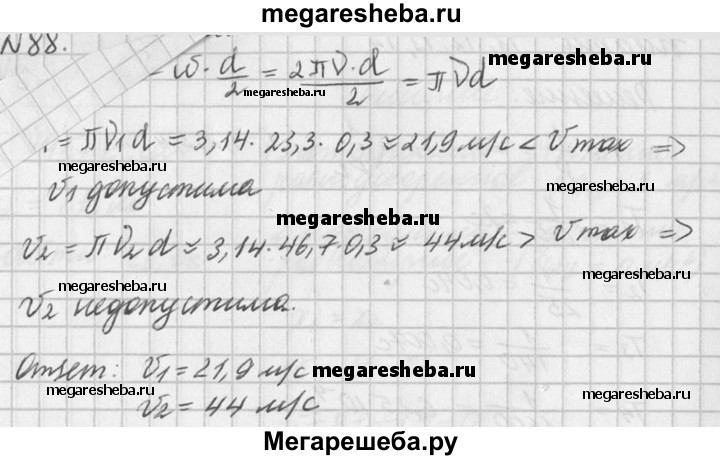 megaresheba.ru
N88.
- ω · d/2 = 2πν·d/2 = πνd
megaresheba.ru
megaresheba.ru
megaresheba.ru
= πν₁d = 3,14 · 23,3 · 0,3 ≈ 21,9 м/с < Vmax ⇒
megaresheba.ru
V₁ допустима
megaresheba.ru
megaresheba.ru
V₂ = πν₂d ≈ 3,14·46,7·0,3 ≈ 44 м/с > Vmax ⇒
megaresheba.ru
megaresheba.ru
V₂ недопустима.
Ответ: V₁ = 21,9 м/с
megaresheba.ru
V₂ = 44 м/с
megaresheba.ru
Мегарешеба.ру